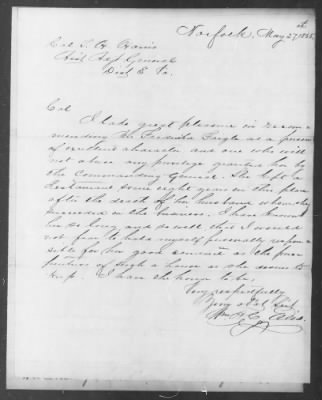 Norfolk, May 27, 1865.
Col
Asst Adj General
Dist E. Va.
Col
I take great pleasure in recom-
mending Mrs as a person
of excellent character and one who will
not abuse any privilege granted her by
the Commanding General. She kept a
Restaurant some eight years in this place
after the death of her husband whom she
succeeded in the business. I have known
her so long, and so well that I would
not fear to hold myself personally respon-
sible for her good conduct as the
of such a house as she desires to
keep. I have the honor to be
Very respectfully
Your obdt Servt
Wm H. C.